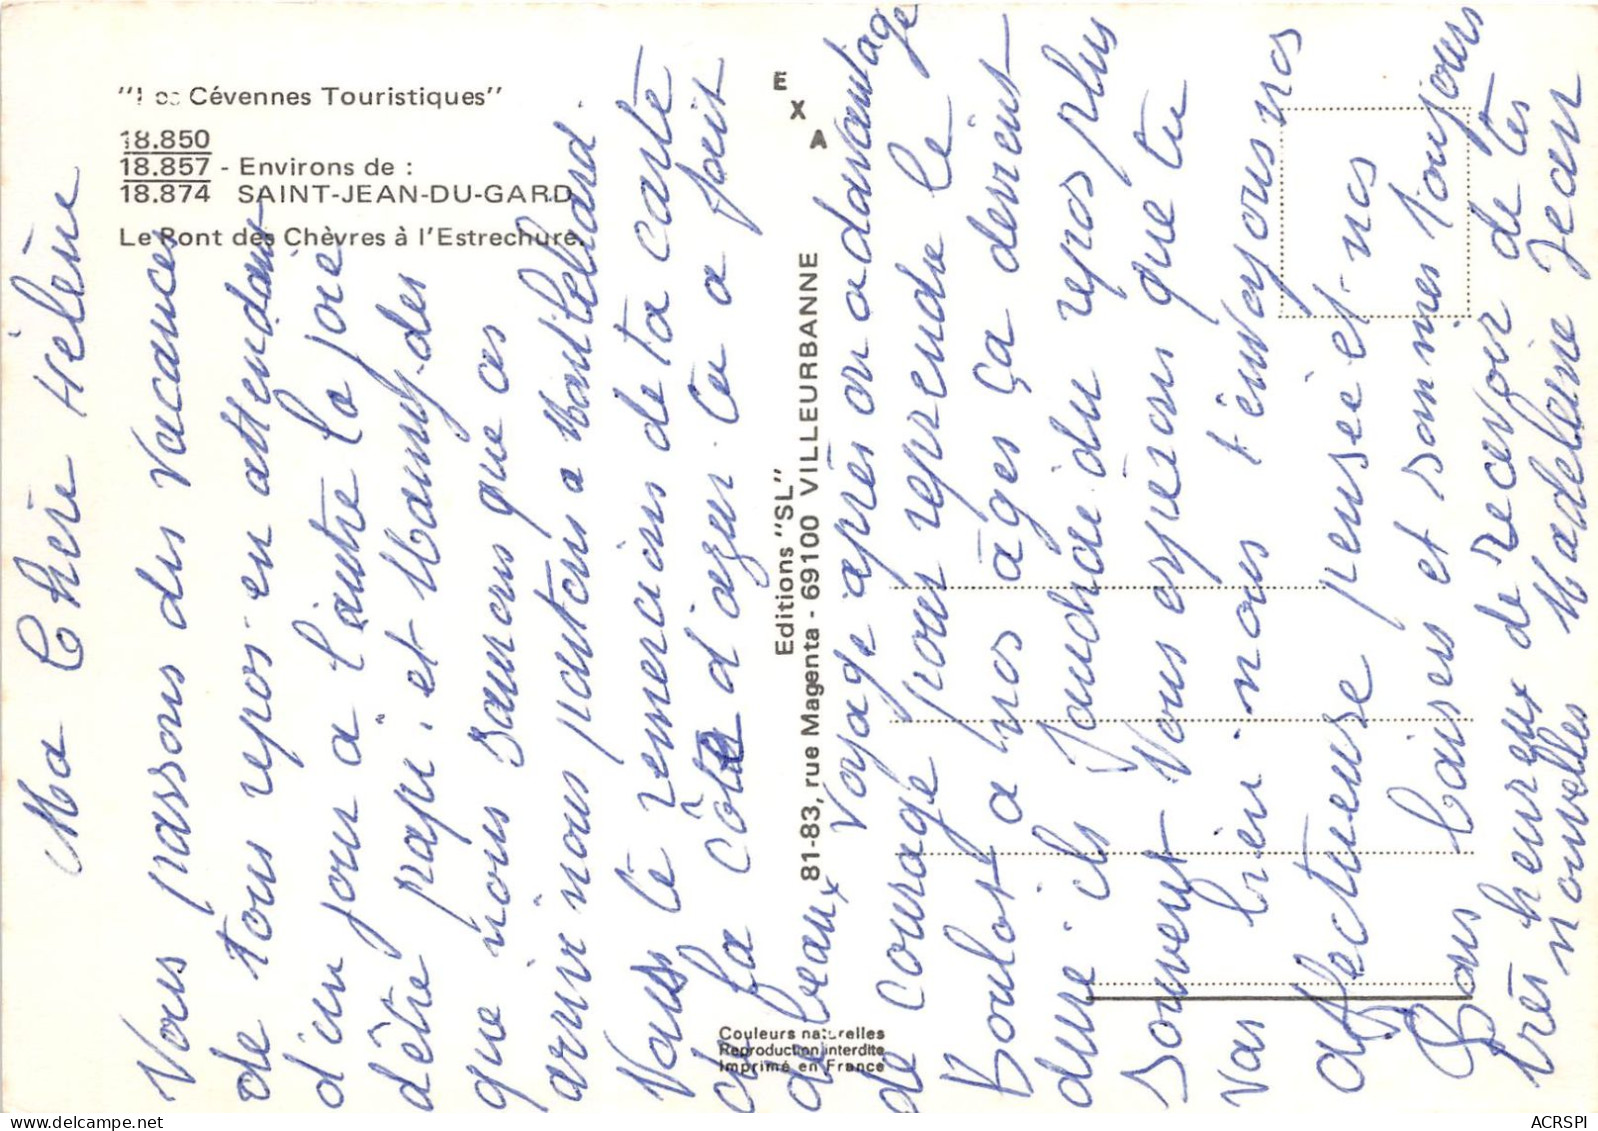 "Les Cévennes Touristiques"
18.850
18.857 - Environs de :
18.874 SAINT-JEAN-DU-GARD
Le Pont des Chèvres à l'Estrechure.
E
X
A
Editions "SL"
81-83, rue Magenta - 69100 VILLEURBANNE
Couleurs naturelles
Reproduction interdite
Imprimé en France
Ma Chère Hélène
Nous passons des vacances
de tous repos. en attendant
d'un jour à l'autre la joie
d'être papi. et Mamy. des
que nous saurons que as
arrivé nous partons a Montbéliard.
Nous te remercions de ta carte
de la côte d'azur. Tu a fait
de beaux voyage après on a davantage
de courage pour reprendre le
Boulot a nos âges ça devient
dure. ils faudrai du repos plus
souvent Nous espérons que tu
vas bien. nous t'envoyons nos
affectueuse pensée et nos
Bons baisers et sommes toujours
très heureux de recevoir de tes
nouvelles Madeleine Jean
ACRSPI